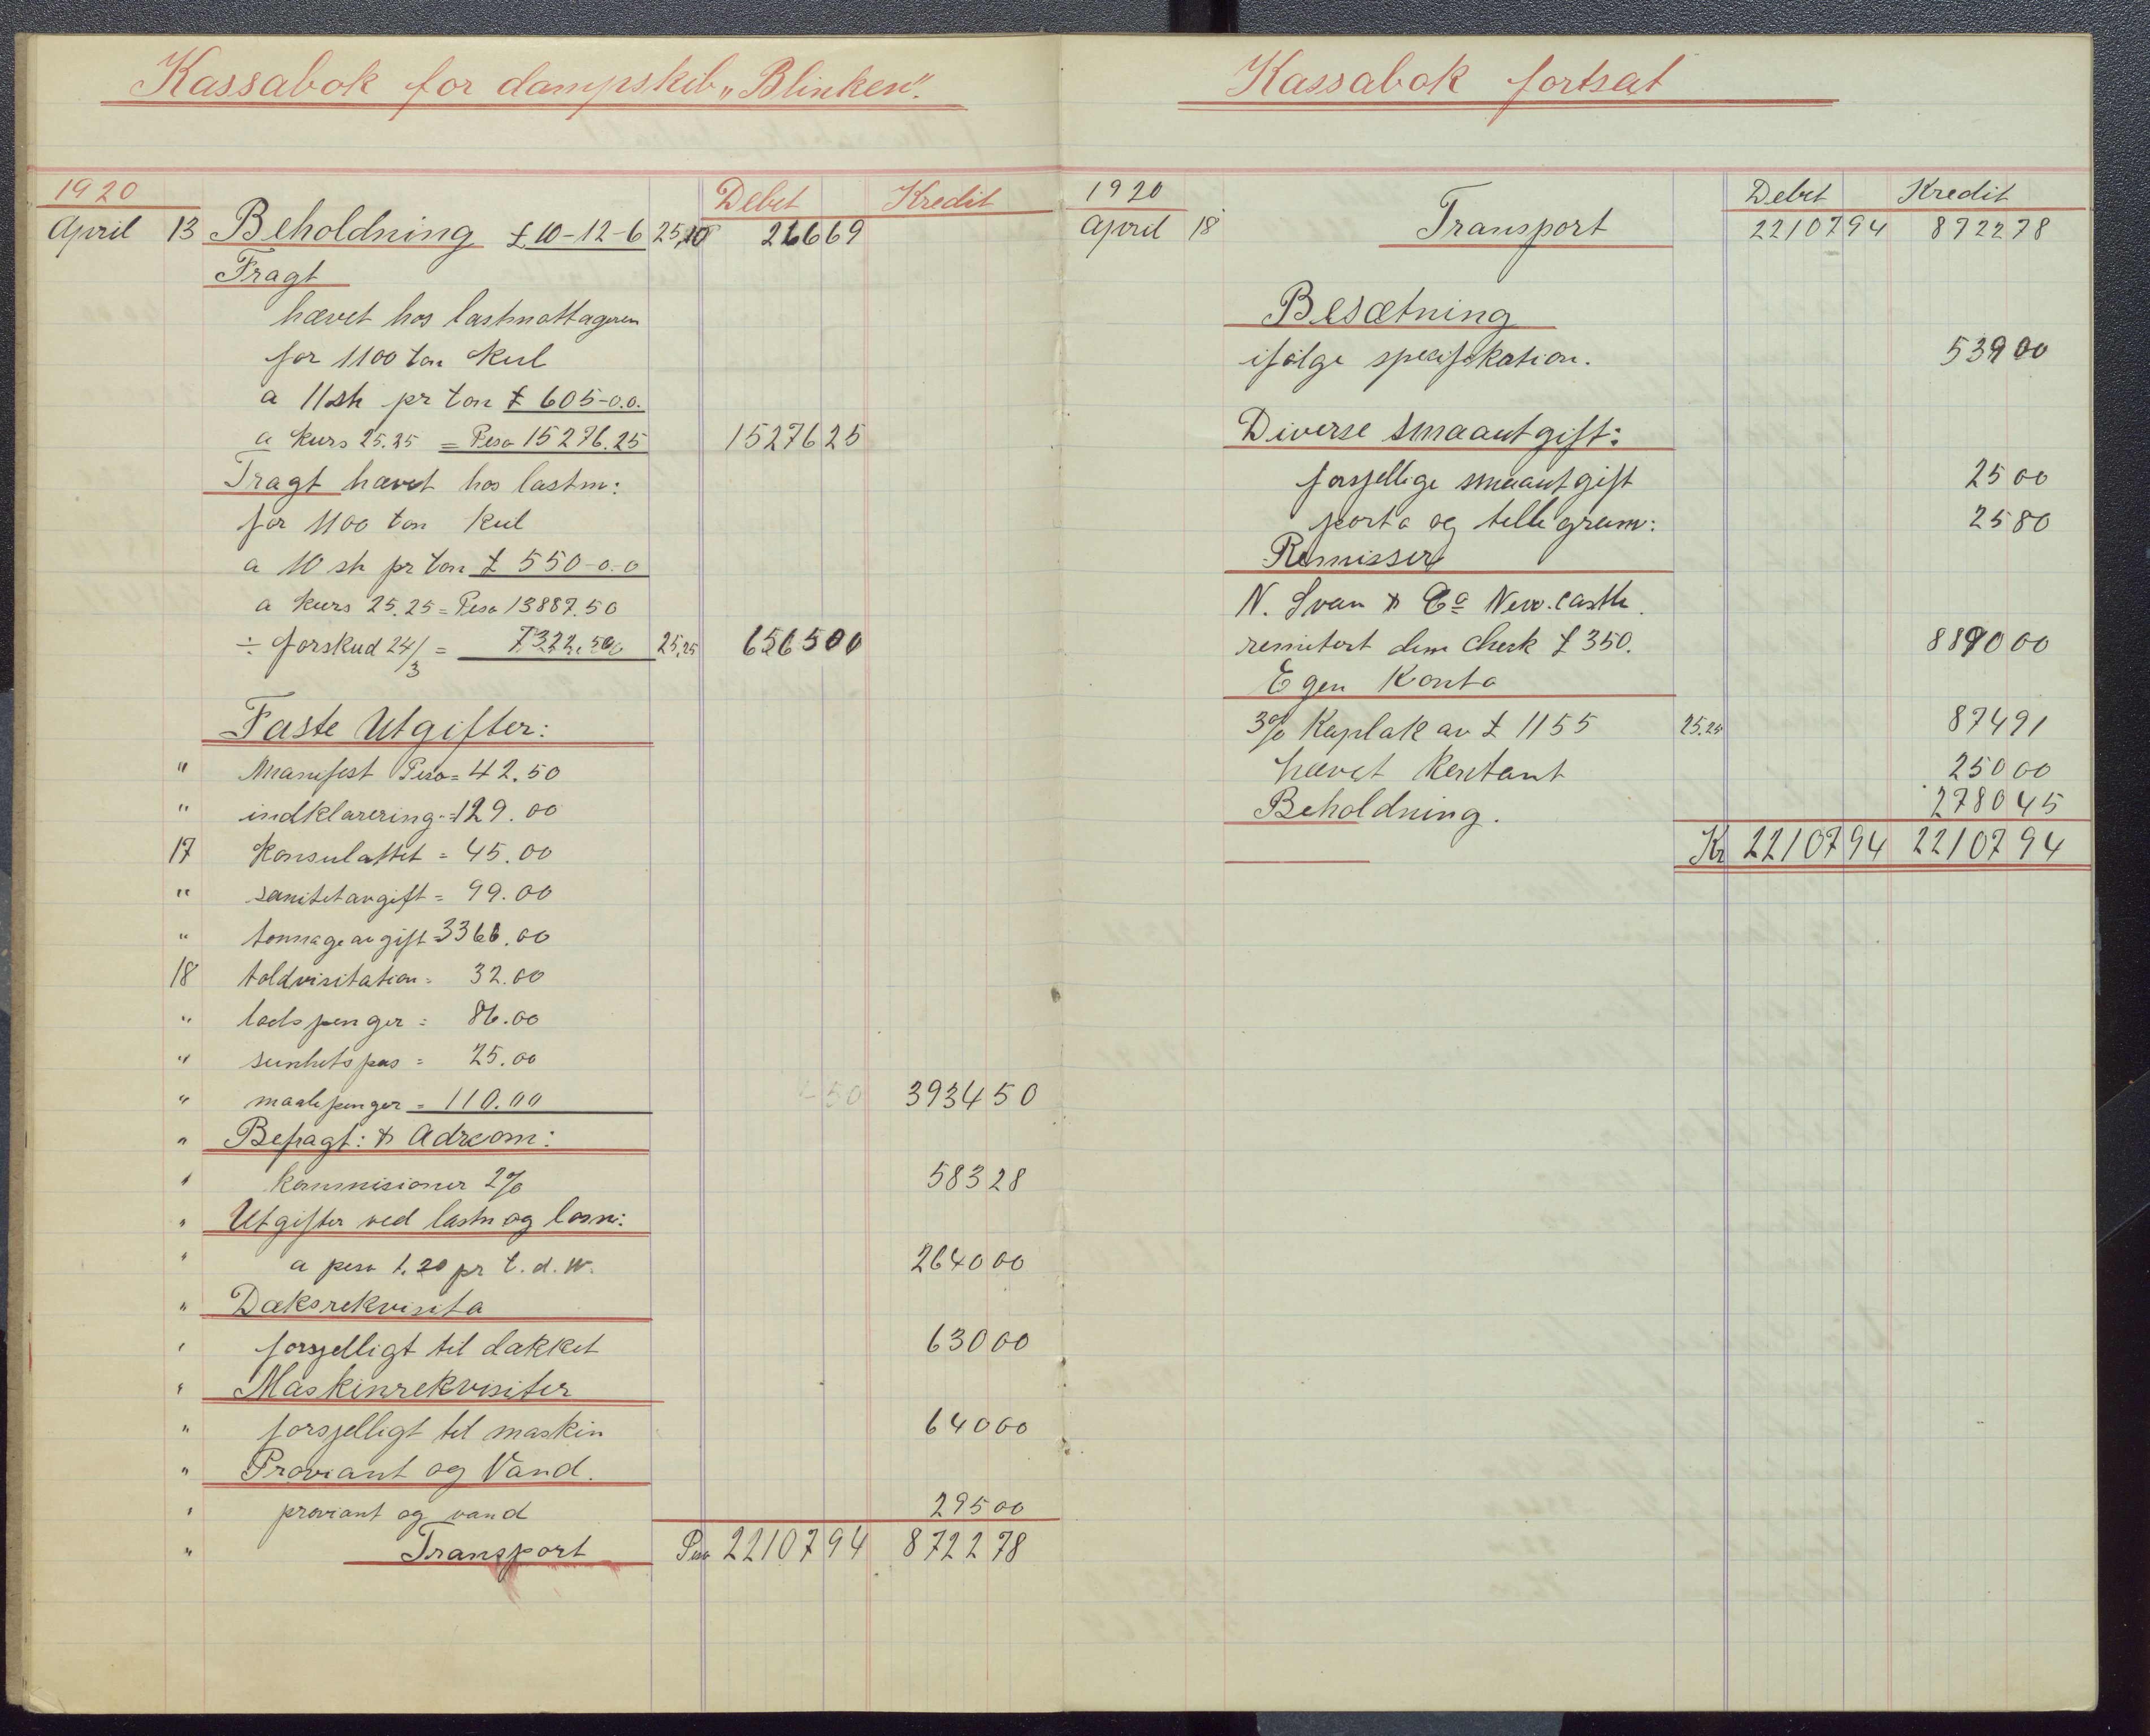 Kassabok for dampskib „Blinken".
1920 Debet Kredit
April 13 Beholdning £ 10-12-6 25,10 266 69
Fragt
hævet hos lastmottageren
for 1100 ton kul
a 11 sh pr ton £ 605-0.0.
a kurs 25.25 = Pesa 15276.25 15276 25
Fragt hævet hos lastm:
for 1100 ton kul
a 10 sh pr ton £ 550-0-0
a kurs 25.25 = Pesa 13887.50
÷ forskud 24/3 = 7322.50 25,25 6565 00
Faste Utgifter:
" manifest Pesa = 42.50
" indklarering = 129.00
17 konsulattet = 45.00
" sanitetavgift = 99.00
" tonnageavgift = 3366.00
18 toldvisitation = 32.00
" lods penger = 86.00
" sunhets pas = 25.00
" maalepenger = 110.00 3934 50
" Befragt: & Adrcom:
" kommisioner 2% 583 28
" Utgifter ved lastn og losn:
" a pesa 1.20 pr t. d. w. 2640 00
" Dæksrekvisita
" forsjelligt til dækket 630 00
" Maskinrekvisiter
" forsjelligt til maskin 640 00
" Proviant og Vand.
" proviant og vand 295 00
" Transport Pesa 22107 94 8722 78
Kassabok fortsat
1920 Debet Kredit
April 18 Transport 22107 94 8722 78
Besætning
ifølge spesifikation. 539 00
Diverse smaautgift:
forsjellige smaautgift 25 00
porto og tellegram: 25 80
Remisser
N. Svan & Co New.castle.
remitert dem check £ 350. 8890 00
Egen Konto
3% Kaplak av £ 1155 25.25 874 91
hævet kontant 250 00
Beholdning. 2780 45
Kr 22107 94 22107 94